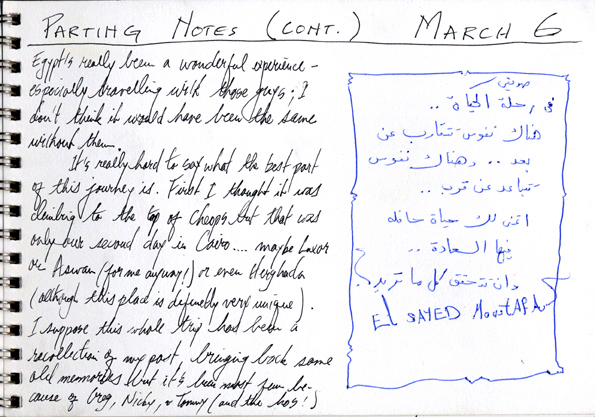 PARTING NOTES (CONT.) MARCH 6
Egypt's really been a wonderful experience -
especially travelling with these guys; I
don't think it would have been the same
without them.
It's really hard to say what the best part
of this journey is. First I thought it was
climbing to the top of Cheops but that was
only our second day in Cairo.... maybe Luxor
or Aswan (for me anyway!) or even Herghada
(although this place is definetly very unique).
I suppose this whole trip has been a
recollection of my past, bringing back some
old memories but it's been most fun be-
cause of Greg, Nicky, & Tommy (and the hos!)
صديقتي
فى رحلة الحياة ..
هناك نفوس تتقارب عن
بعد .. وهناك نفوس
تتباعد عن قرب ..
اتمنى لك حياة حافله
فيها السعادة ..
وان تتحقق كل ما تريد
EL SAYED MOUSTAFA